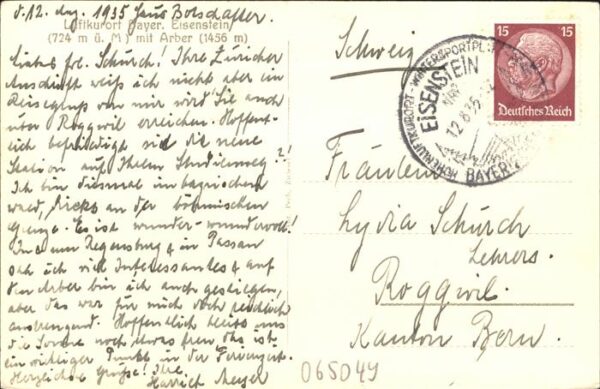 d. 12. Aug. 1935 Haus Botschafter.
Luftkurort Bayer. Eisenstein
(724 m ü. M.) mit Arber (1456 m)
Liebes Frl. Schürch! Ihre Züricher
Anschrift weiß ich nicht aber ein
Reisegruß von mir wird Sie auch
über Roggwil erreichen. Hoffent-
lich befriedigt sie die neue
Station auf Ihrem Studienweg?!
Ich bin diesmal im bayrischen
Wald, direkt an der böhmischen
Grenze. Es ist wunder-wundervoll!
In Regensburg & in Passau
sah ich viel Interessantes & auf
den Arber bin ich auch gestiegen,
aber das war für mich doch reichlich
anstrengend. Hoffentlich bleibt uns
die Sonne noch etwas treu, das ist
ein wichtiger Punkt in der Ferienzeit.
Herzliche Grüße! Ihre
Harriet Meyer
Schweiz
HÖHENLUFTKURORT - WINTERSPORTPL.
EISENSTEIN
12.8.35
BAYER.
15 15
Deutsches Reich
Fräulein
Lydia Schürch
Lehrers.
Roggwil.
Kanton Bern.
065049